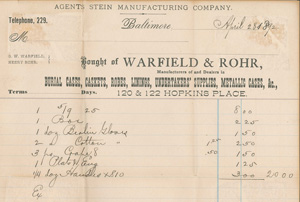 AGENTS STEIN MANUFACTURING COMPANY.
Telephone, 229.
Baltimore, April 28 1892
M
G. W. WARFIELD,
HENRY ROHR.
Bought of WARFIELD & ROHR,
Manufacturers of and Dealers in
BURIAL CASES, CASKETS, ROBES, LININGS, UNDERTAKERS' SUPPLIES, METALLIC CASES, &c.,
Terms Days. 120 & 122 HOPKINS PLACE.
1 5/9 25 8 00
1 Box 2 25
1 Doz Gloves 1 50
2 " Cotton " 1 25
3 Crape 50 1 50
1 Plate & Eng 1 50
Doz Handles 810 3 00 20 00